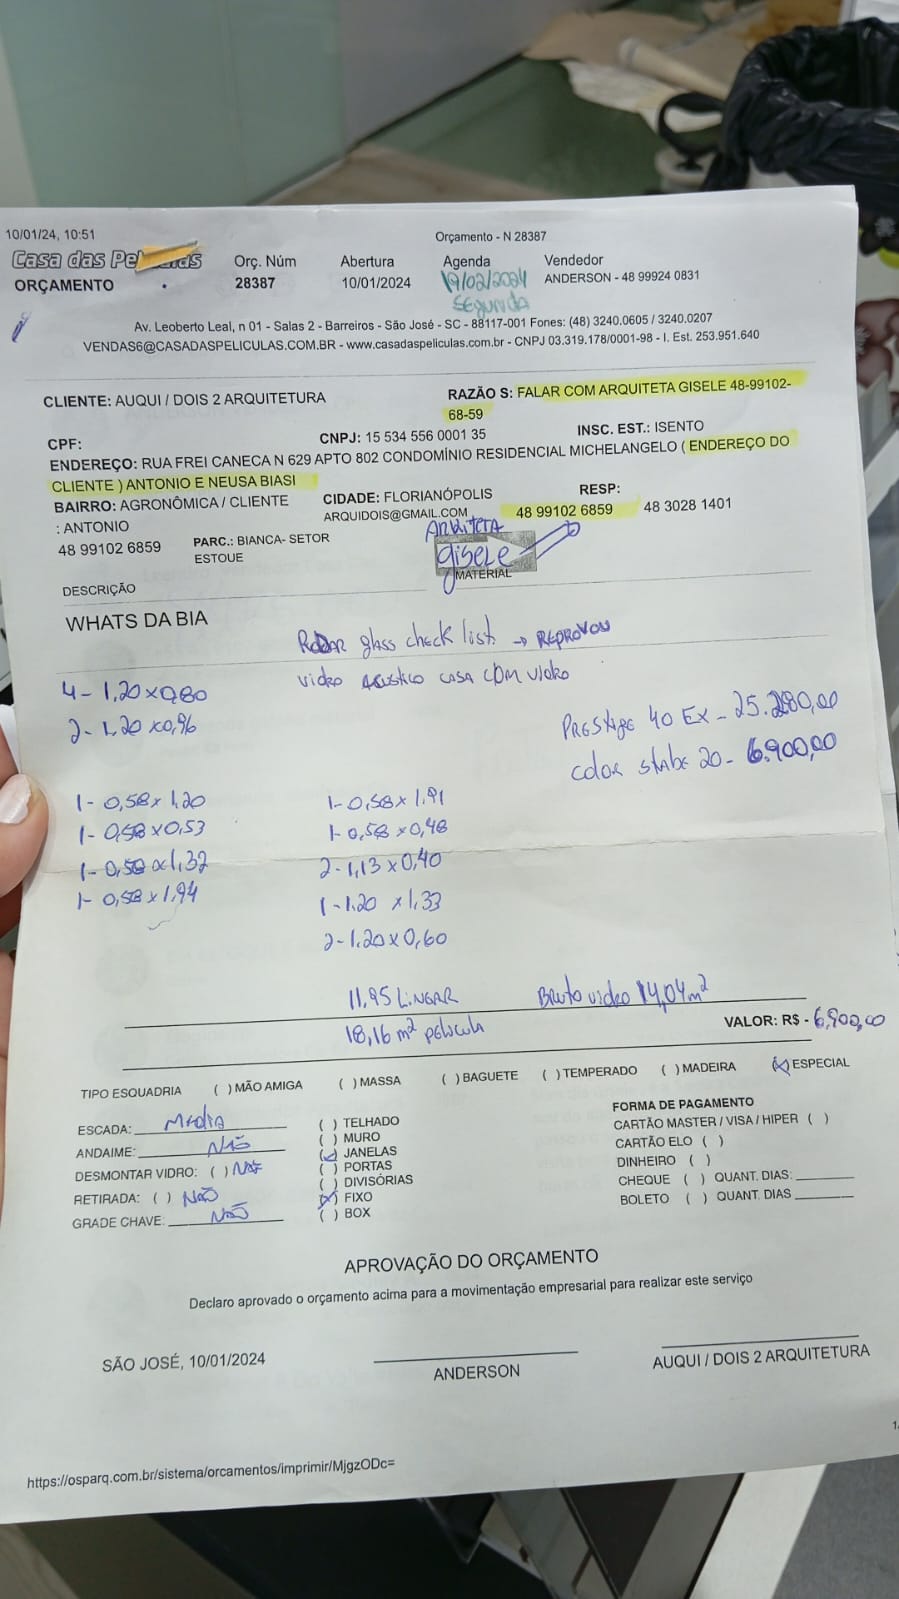 10/01/24, 10:51
Orçamento - N 28387
Casa das Películas
ORÇAMENTO
Orç. Núm
28387
Abertura
10/01/2024
Agenda
19/02/2024
SEGUNDA
Vendedor
ANDERSON - 48 99924 0831
Av. Leoberto Leal, n 01 - Salas 2 - Barreiros - São José - SC - 88117-001 Fones: (48) 3240.0605 / 3240.0207
VENDAS6@CASADASPELICULAS.COM.BR - www.casadaspeliculas.com.br - CNPJ 03.319.178/0001-98 - I. Est. 253.951.640
CLIENTE: AUQUI / DOIS 2 ARQUITETURA
RAZÃO S: FALAR COM ARQUITETA GISELE 48-99102-
68-59
CPF:
CNPJ: 15 534 556 0001 35
INSC. EST.: ISENTO
ENDEREÇO: RUA FREI CANECA N 629 APTO 802 CONDOMÍNIO RESIDENCIAL MICHELANGELO ( ENDEREÇO DO
CLIENTE ) ANTONIO E NEUSA BIASI
BAIRRO: AGRONÔMICA / CLIENTE
: ANTONIO
CIDADE: FLORIANÓPOLIS
ARQUIDOIS@GMAIL.COM
RESP:
48 99102 6859
48 3028 1401
48 99102 6859
PARC.: BIANCA- SETOR
ESTOUE
ARQUITETA
GISELE
DESCRIÇÃO
MATERIAL
WHATS DA BIA
glass check list → REPROVOU
vidro ACUSTICO CASA COM VIDRO
4 - 1,20 x 0,80
2 - 1,20 x 0,96
PREStige 40 EX - 25.280,00
color stabe 20 - 6.900,00
1 - 0,58 x 1,20
1 - 0,58 x 1,91
1 - 0,58 x 0,53
1 - 0,58 x 0,48
1 - 0,58 x 1,32
2 - 1,13 x 0,40
1 - 0,58 x 1,94
1 - 1,20 x 1,33
2 - 1,20 x 0,60
11,95 LINEAR
Bruto vidro 14,04 m²
18,16 m² película
VALOR: R$ - 6,900,00
TIPO ESQUADRIA ( ) MÃO AMIGA ( ) MASSA ( ) BAGUETE ( ) TEMPERADO ( ) MADEIRA (x) ESPECIAL
ESCADA: Média
ANDAIME: NÃO
DESMONTAR VIDRO: ( ) NÃO
RETIRADA: ( ) NÃO
GRADE CHAVE: NÃO
( ) TELHADO
( ) MURO
(✓) JANELAS
( ) PORTAS
( ) DIVISÓRIAS
(x) FIXO
( ) BOX
FORMA DE PAGAMENTO
CARTÃO MASTER / VISA / HIPER ( )
CARTÃO ELO ( )
DINHEIRO ( )
CHEQUE ( ) QUANT. DIAS:
BOLETO ( ) QUANT. DIAS
APROVAÇÃO DO ORÇAMENTO
Declaro aprovado o orçamento acima para a movimentação empresarial para realizar este serviço
SÃO JOSÉ, 10/01/2024
ANDERSON
AUQUI / DOIS 2 ARQUITETURA
https://osparq.com.br/sistema/orcamentos/imprimir/MjgzODc=